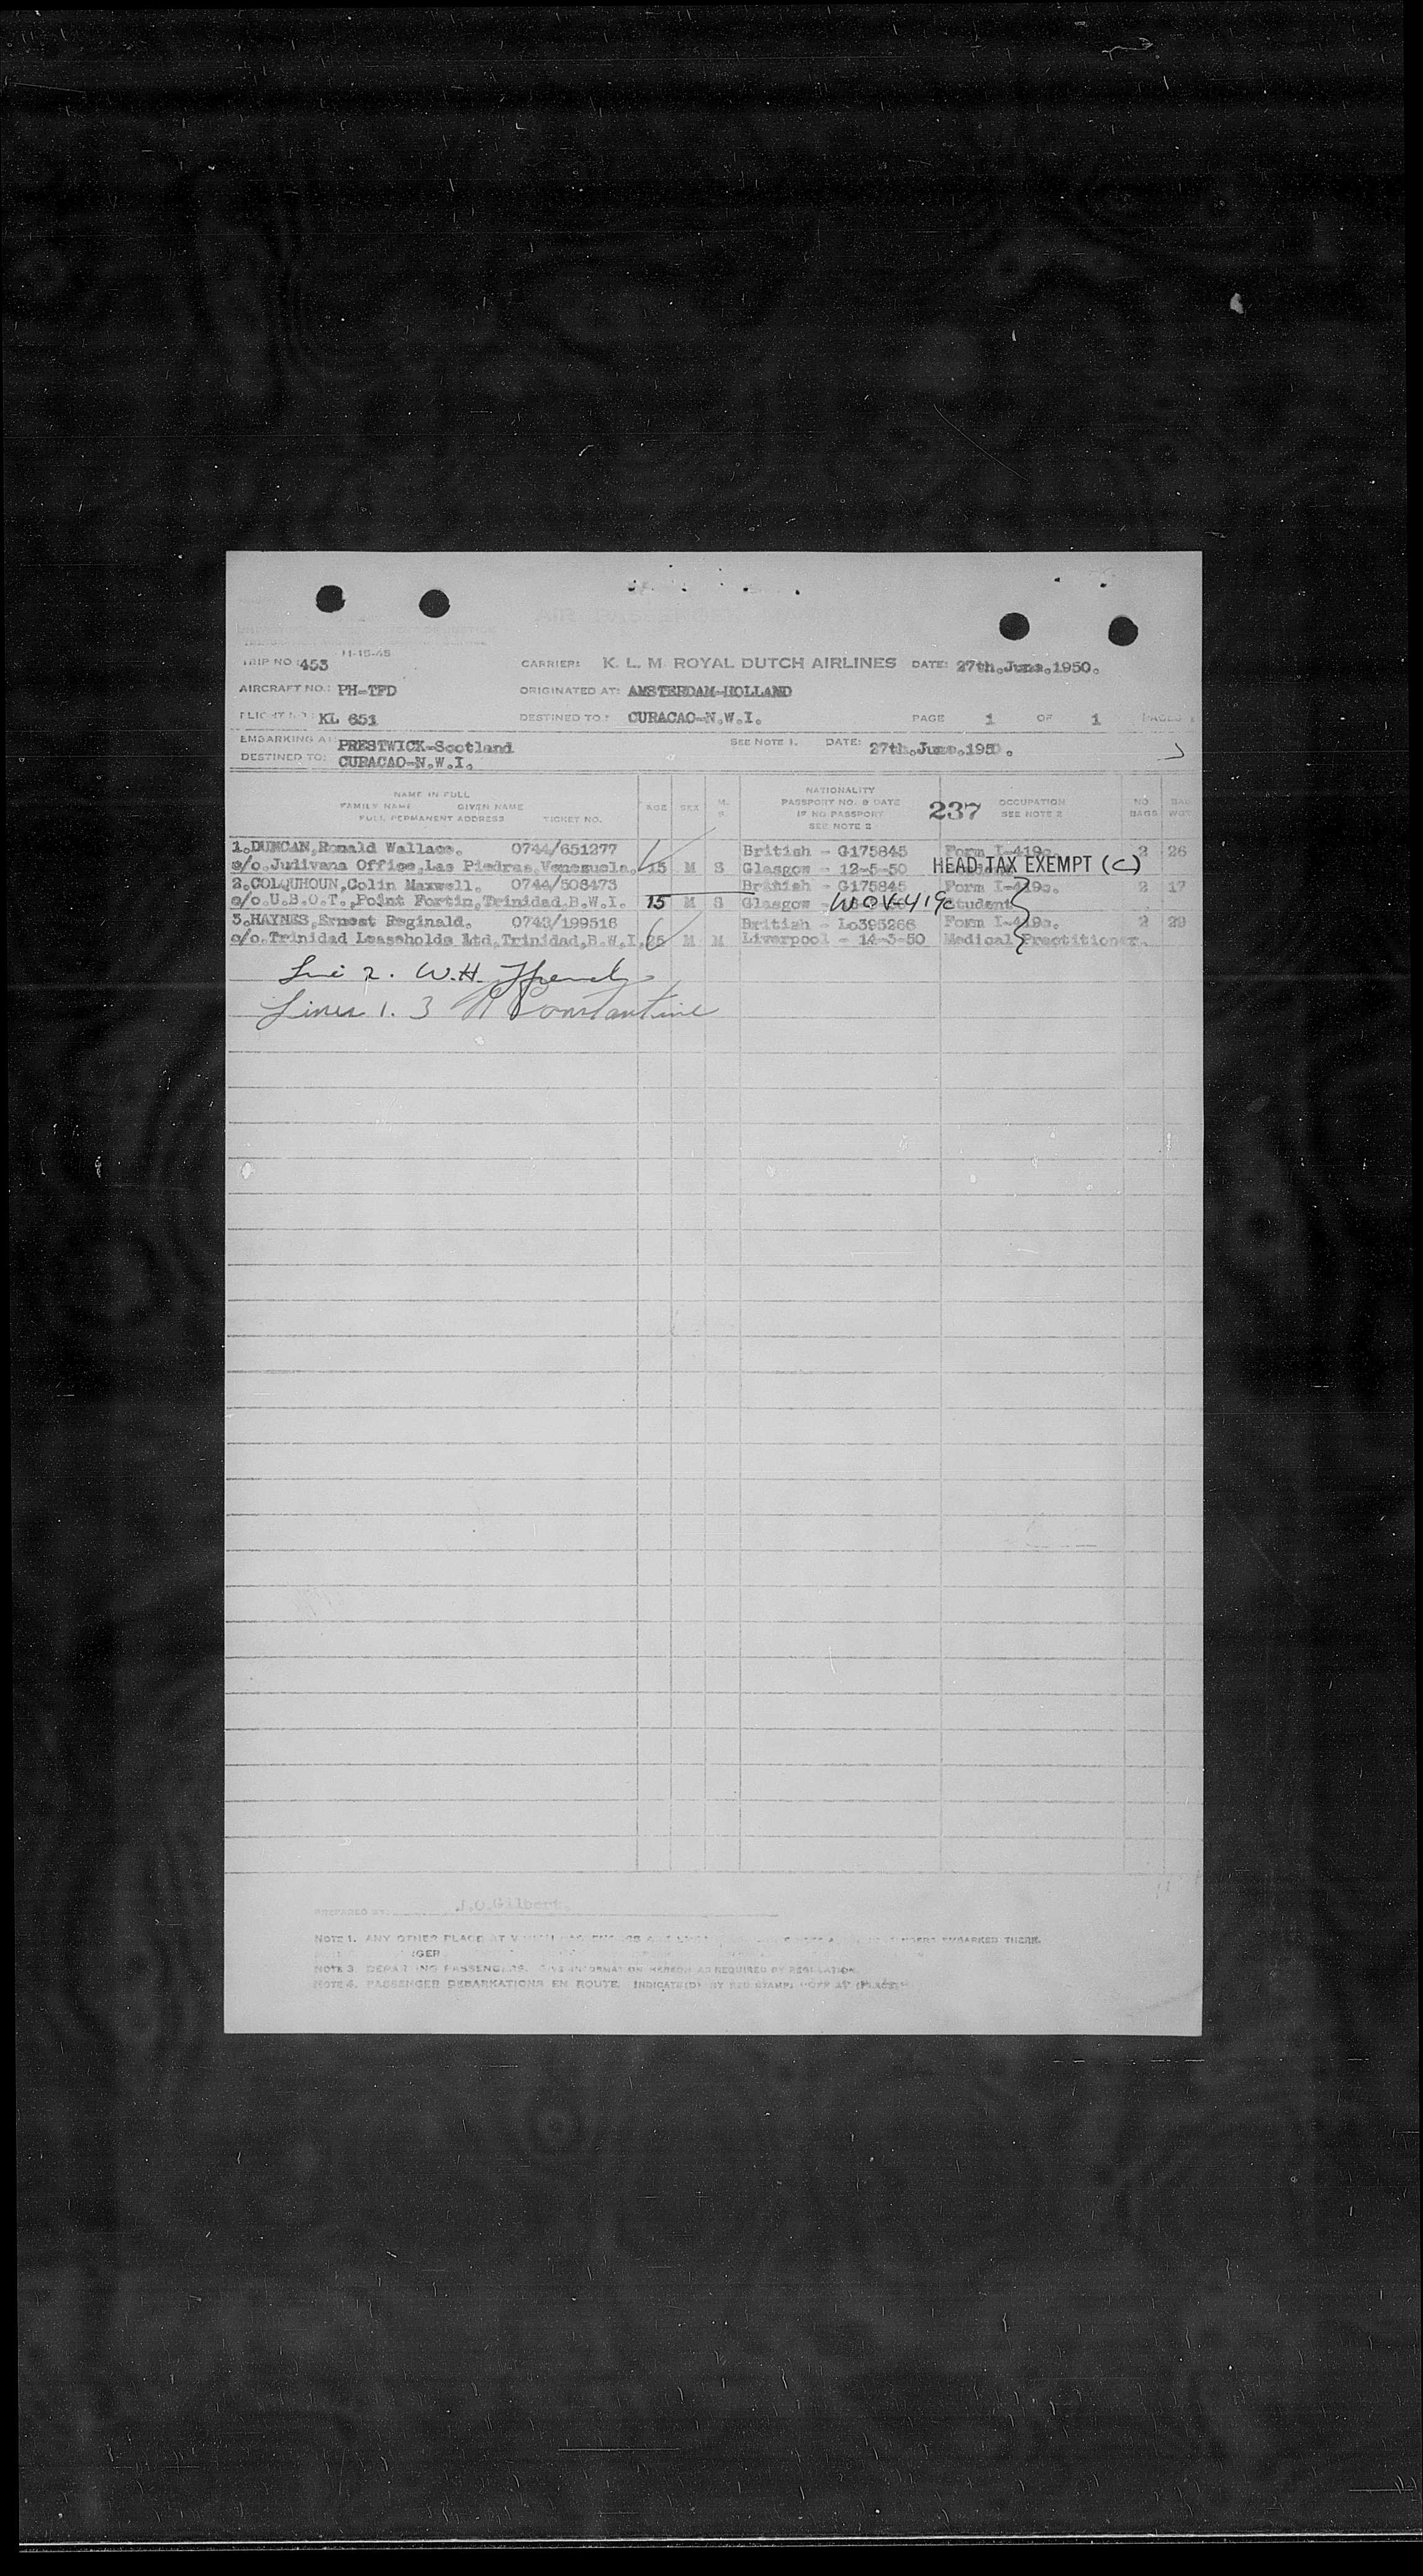 11-15-45
TRIP NO: 453 CARRIER: K. L. M. ROYAL DUTCH AIRLINES DATE: 27th.June.1950.
AIRCRAFT NO.: PH-TFD ORIGINATED AT: AMSTERDAM-HOLLAND
FLIGHT NO: KL 651 DESTINED TO: CURACAO-N.W.I. PAGE 1 OF 1 PAGES
EMBARKING AT: PRESTWICK-Scotland SEE NOTE 1. DATE: 27th.June.1950.
DESTINED TO: CURACAO-N.W.I.
NAME IN FULL NATIONALITY
FAMILY NAME GIVEN NAME AGE SEX M. S. PASSPORT NO. & DATE 237 OCCUPATION NO BAG
FULL PERMANENT ADDRESS TICKET NO. IF NO PASSPORT SEE NOTE 2 BAGS WGT
SEE NOTE 2
1.DUNCAN,Ronald Wallace. 0744/651277 British - G175845 Form I-419c. 2 26
c/o.Judivana Office,Las Piedras,Venezuela. 15 M S Glasgow - 12-5-50 HEAD TAX EXEMPT (C)
2.COLQUHOUN,Colin Maxwell. 0744/508473 British - G175845 Form I-419c. 2 17
c/o.U.B.O.T.,Point Fortin,Trinidad,B.W.I. 15 M S Glasgow - WOV-419c Student
3.HAYNES,Ernest Reginald. 0743/199516 British - Lo395266 Form I-419c. 2 29
c/o.Trinidad Leaseholds Ltd,Trinidad,B.W.I. M M Liverpool - 14-3-50 Medical Practitioner.
Line 2. W.H.
Lines 1. 3 Constantine
PREPARED BY: J.O.Gilbert.
NOTE 1. ANY OTHER PLACE AT WHICH EMBARKED THERE.
NOTE 3 DEPARTING PASSENGERS. GIVE INFORMATION HEREON AS REQUIRED BY REGULATION.
NOTE 4. PASSENGER DEBARKATIONS EN ROUTE. INDICATE(D) BY RED STAMP: "OFF AT (PLACE)"